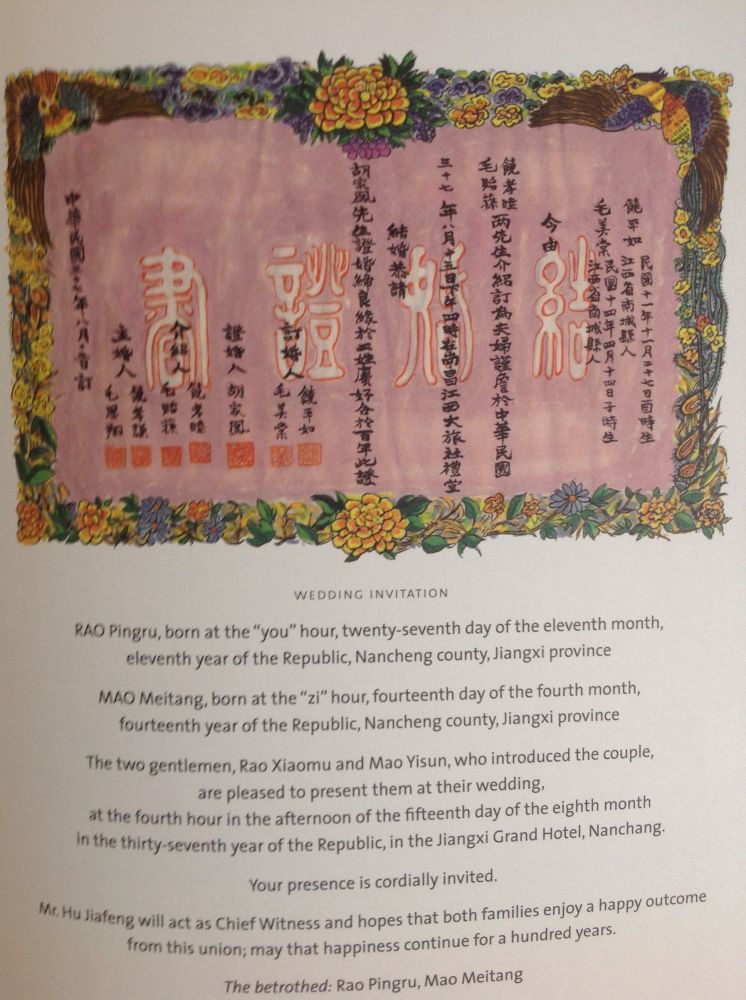 結婚證書
饒平如 民國十一年十一月二十七日酉時生
江西省南城縣人
毛美棠 民國十四年四月十四日子時生
江西省南城縣人
今由
饒孝睦
毛貽蓀 两先生介紹訂為夫婦謹詹於中華民國
三十七年八月十五日下午四時在南昌江西大旅社禮堂
結婚恭請
胡家鳳先生證婚締良緣於二姓慶好合於百年此證
訂婚人 饒平如
毛美棠
證婚人 胡家鳳
介紹人 饒孝睦
毛貽蓀
主婚人 饒孝謙
毛思翔
中華民國三十七年八月 訂
WEDDING INVITATION
RAO Pingru, born at the “you” hour, twenty-seventh day of the eleventh month,
eleventh year of the Republic, Nancheng county, Jiangxi province
MAO Meitang, born at the “zi” hour, fourteenth day of the fourth month,
fourteenth year of the Republic, Nancheng county, Jiangxi province
The two gentlemen, Rao Xiaomu and Mao Yisun, who introduced the couple,
are pleased to present them at their wedding,
at the fourth hour in the afternoon of the fifteenth day of the eighth month
in the thirty-seventh year of the Republic, in the Jiangxi Grand Hotel, Nanchang.
Your presence is cordially invited.
Mr. Hu Jiafeng will act as Chief Witness and hopes that both families enjoy a happy outcome
from this union; may that happiness continue for a hundred years.
The betrothed: Rao Pingru, Mao Meitang